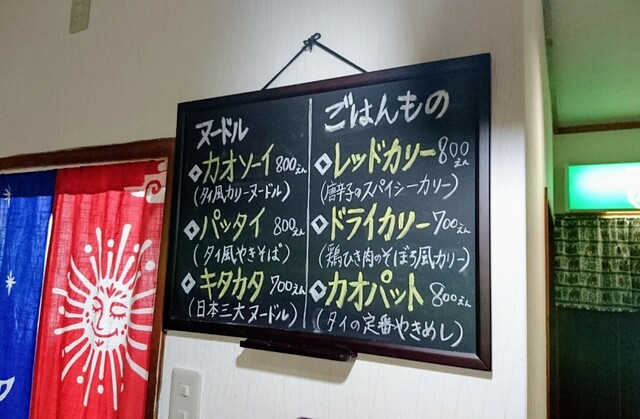 ヌードル
カオソーイ 800えん
(タイ風カリーヌードル)
パッタイ 800えん
(タイ風やきそば)
キタカタ 700えん
(日本三大ヌードル)
ごはんもの
レッドカリー 800えん
(唐辛子のスパイシーカリー)
ドライカリー 700えん
(鶏ひき肉のそぼろ風カリー)
カオパット 800えん
(タイの定番やきめし)